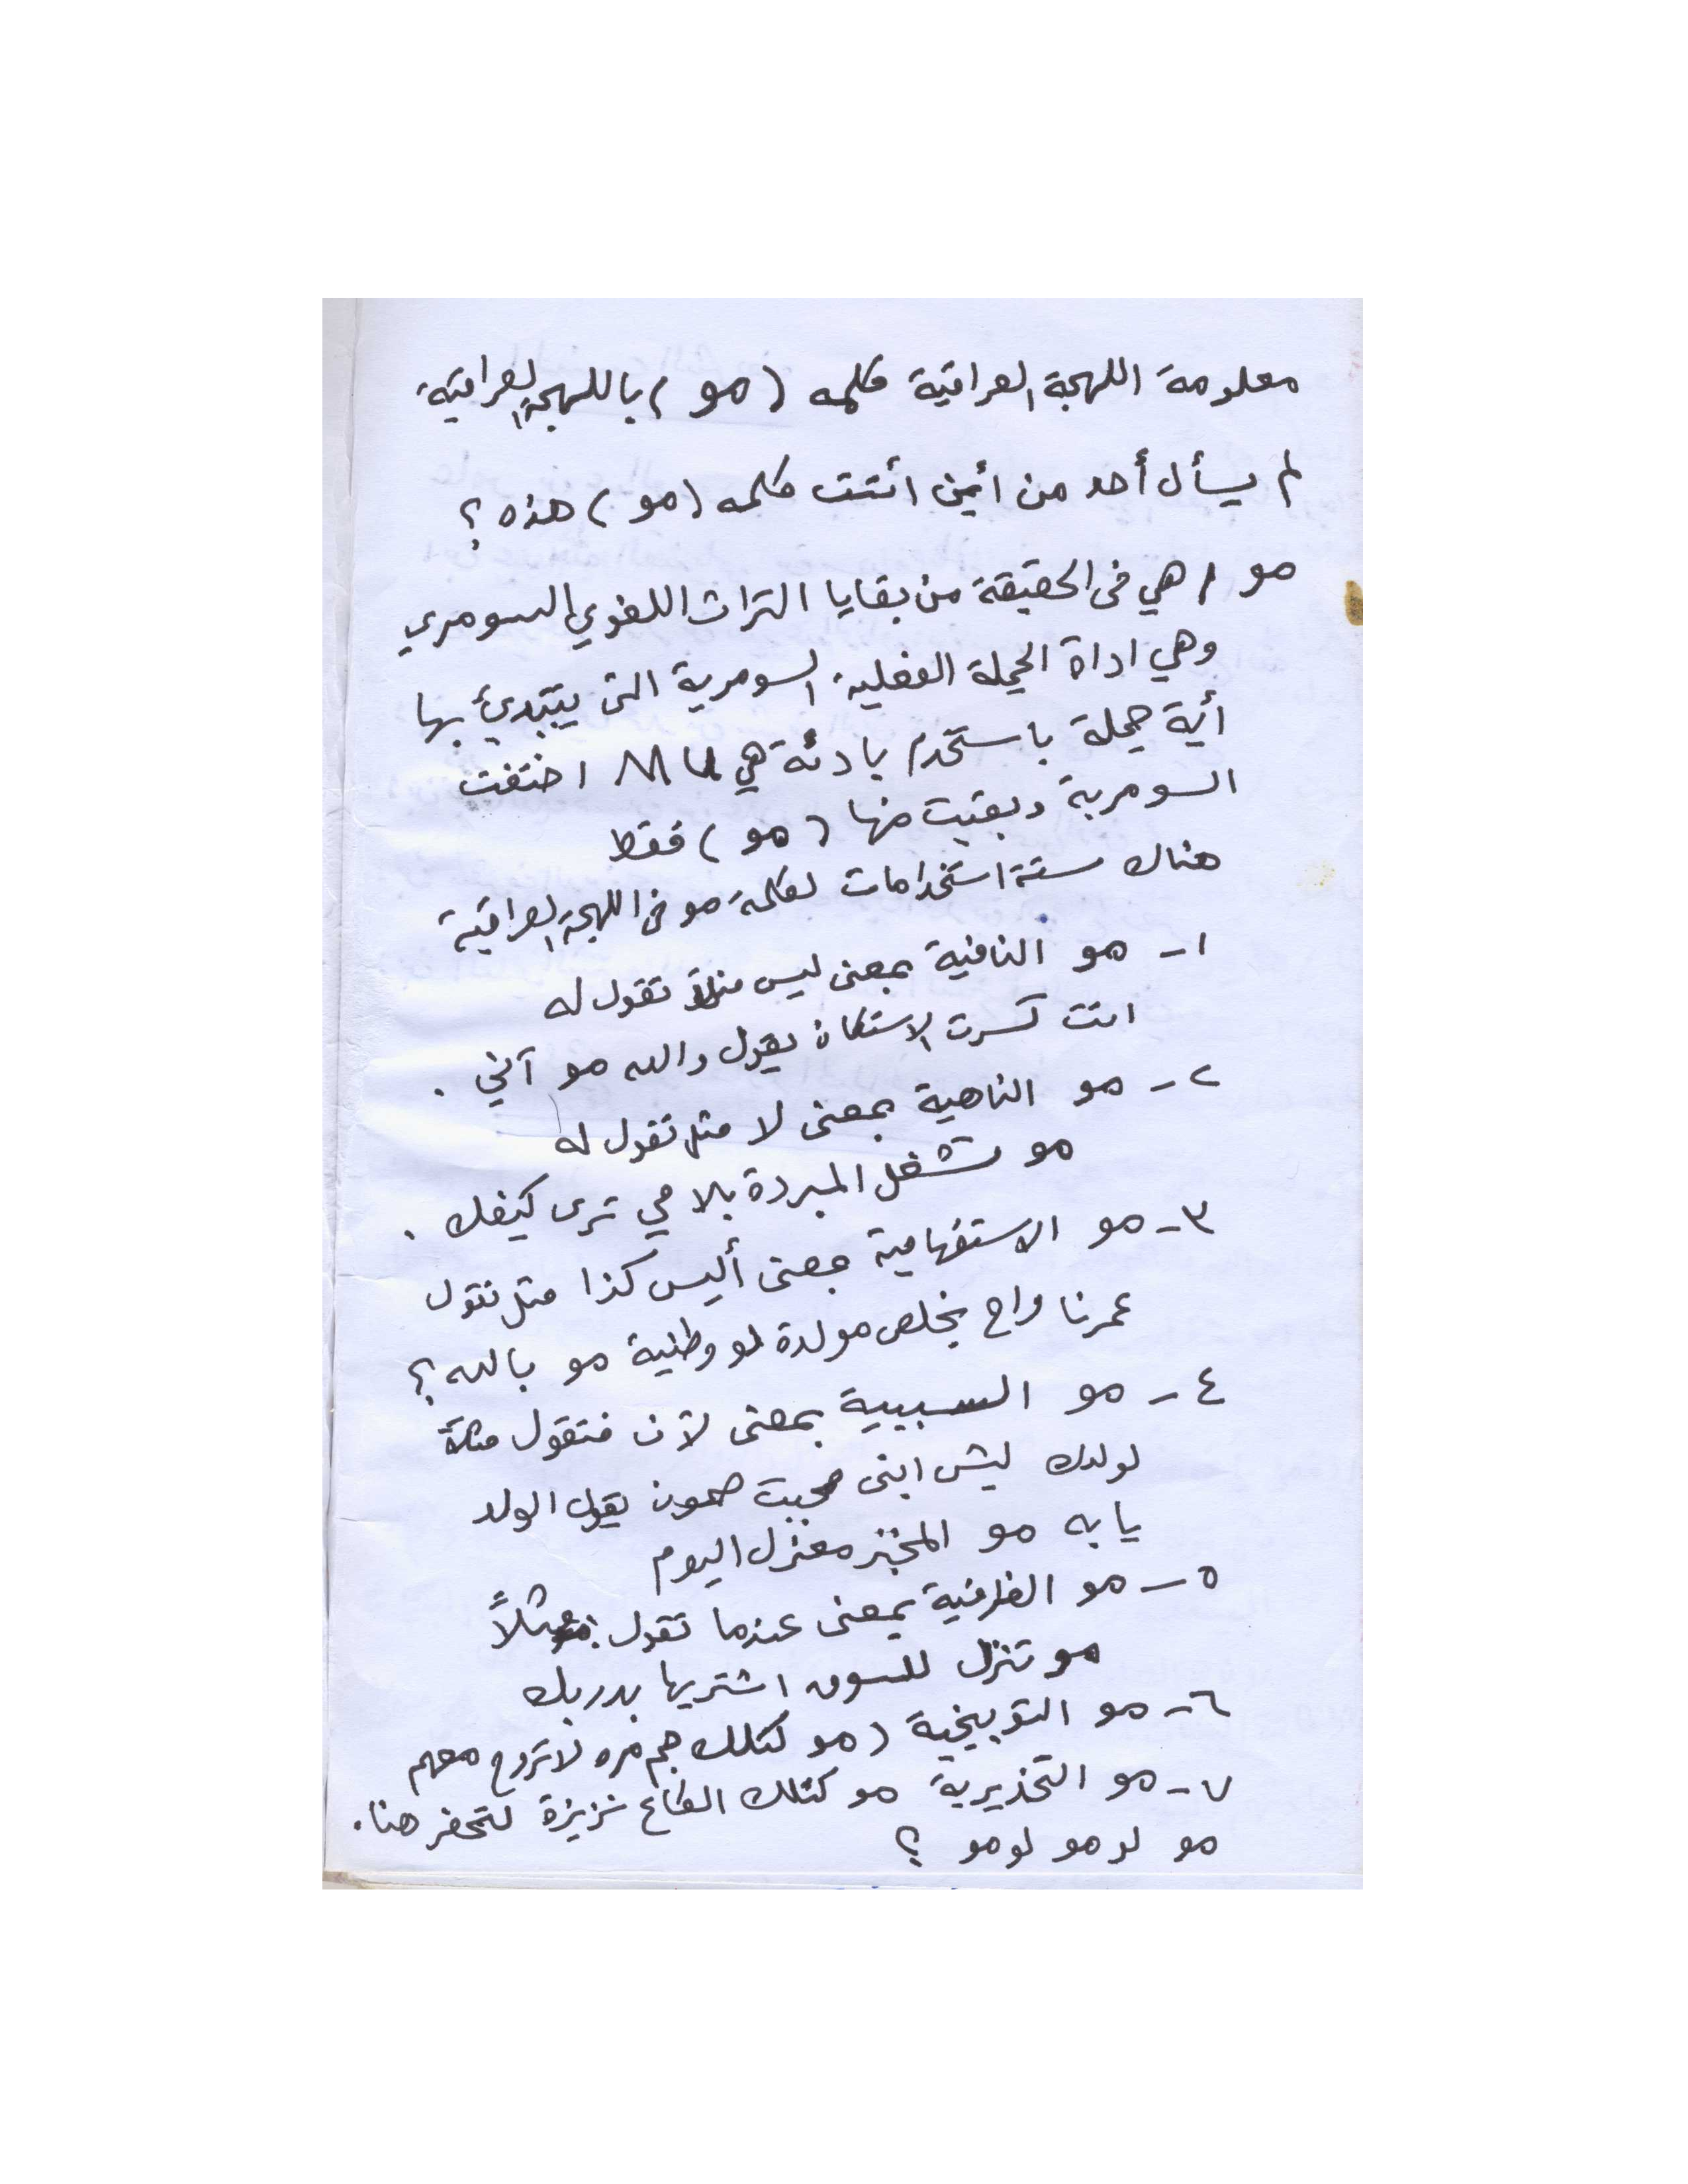 معلومة اللهجة العراقية كلمه (مو) باللهجة العراقية
لم يسأل أحد من أين أتت كلمه (مو) هذه ؟
مو / هي في الحقيقة من بقايا التراث اللغوي السومري
وهي اداة الجملة الفعلية السومرية التي يبتدئ بها
أية جملة باستخدم بادئة هي MU اختفت
السومرية وبقيت منها (مو) فقط
هناك ستة استخدامات لكلمة مو في اللهجة العراقية
١- مو النافية بمعنى ليس مثلاً تقول له
انت كسرت الاستكان يقول والله مو آني .
٢- مو الناهية بمعنى لا مثل تقول له
مو تشغل المبردة بلا مي ترى كيفك .
٣- مو الاستفهامية بمعنى أليس كذا مثل نقول
عمرنا راح يخلص مولدة لو وطنية مو بالله ؟
٤- مو السببية بمعنى لأن فتقول مثلاً
لولدك ليش ابني مجبت صمون يقول الولد
يابه مو المخبز معزل اليوم
٥- مو الظرفية بمعنى عندما تقول: مثلاً
مو تنزل للسوق اشتريها بدربك
٦- مو التوبيخية (مو كتلك جم مره لا تروح معهم
٧- مو التحذيرية مو كتلك الكاع نزيزة لتحفر هنا.
مو لو مو لو مو ؟